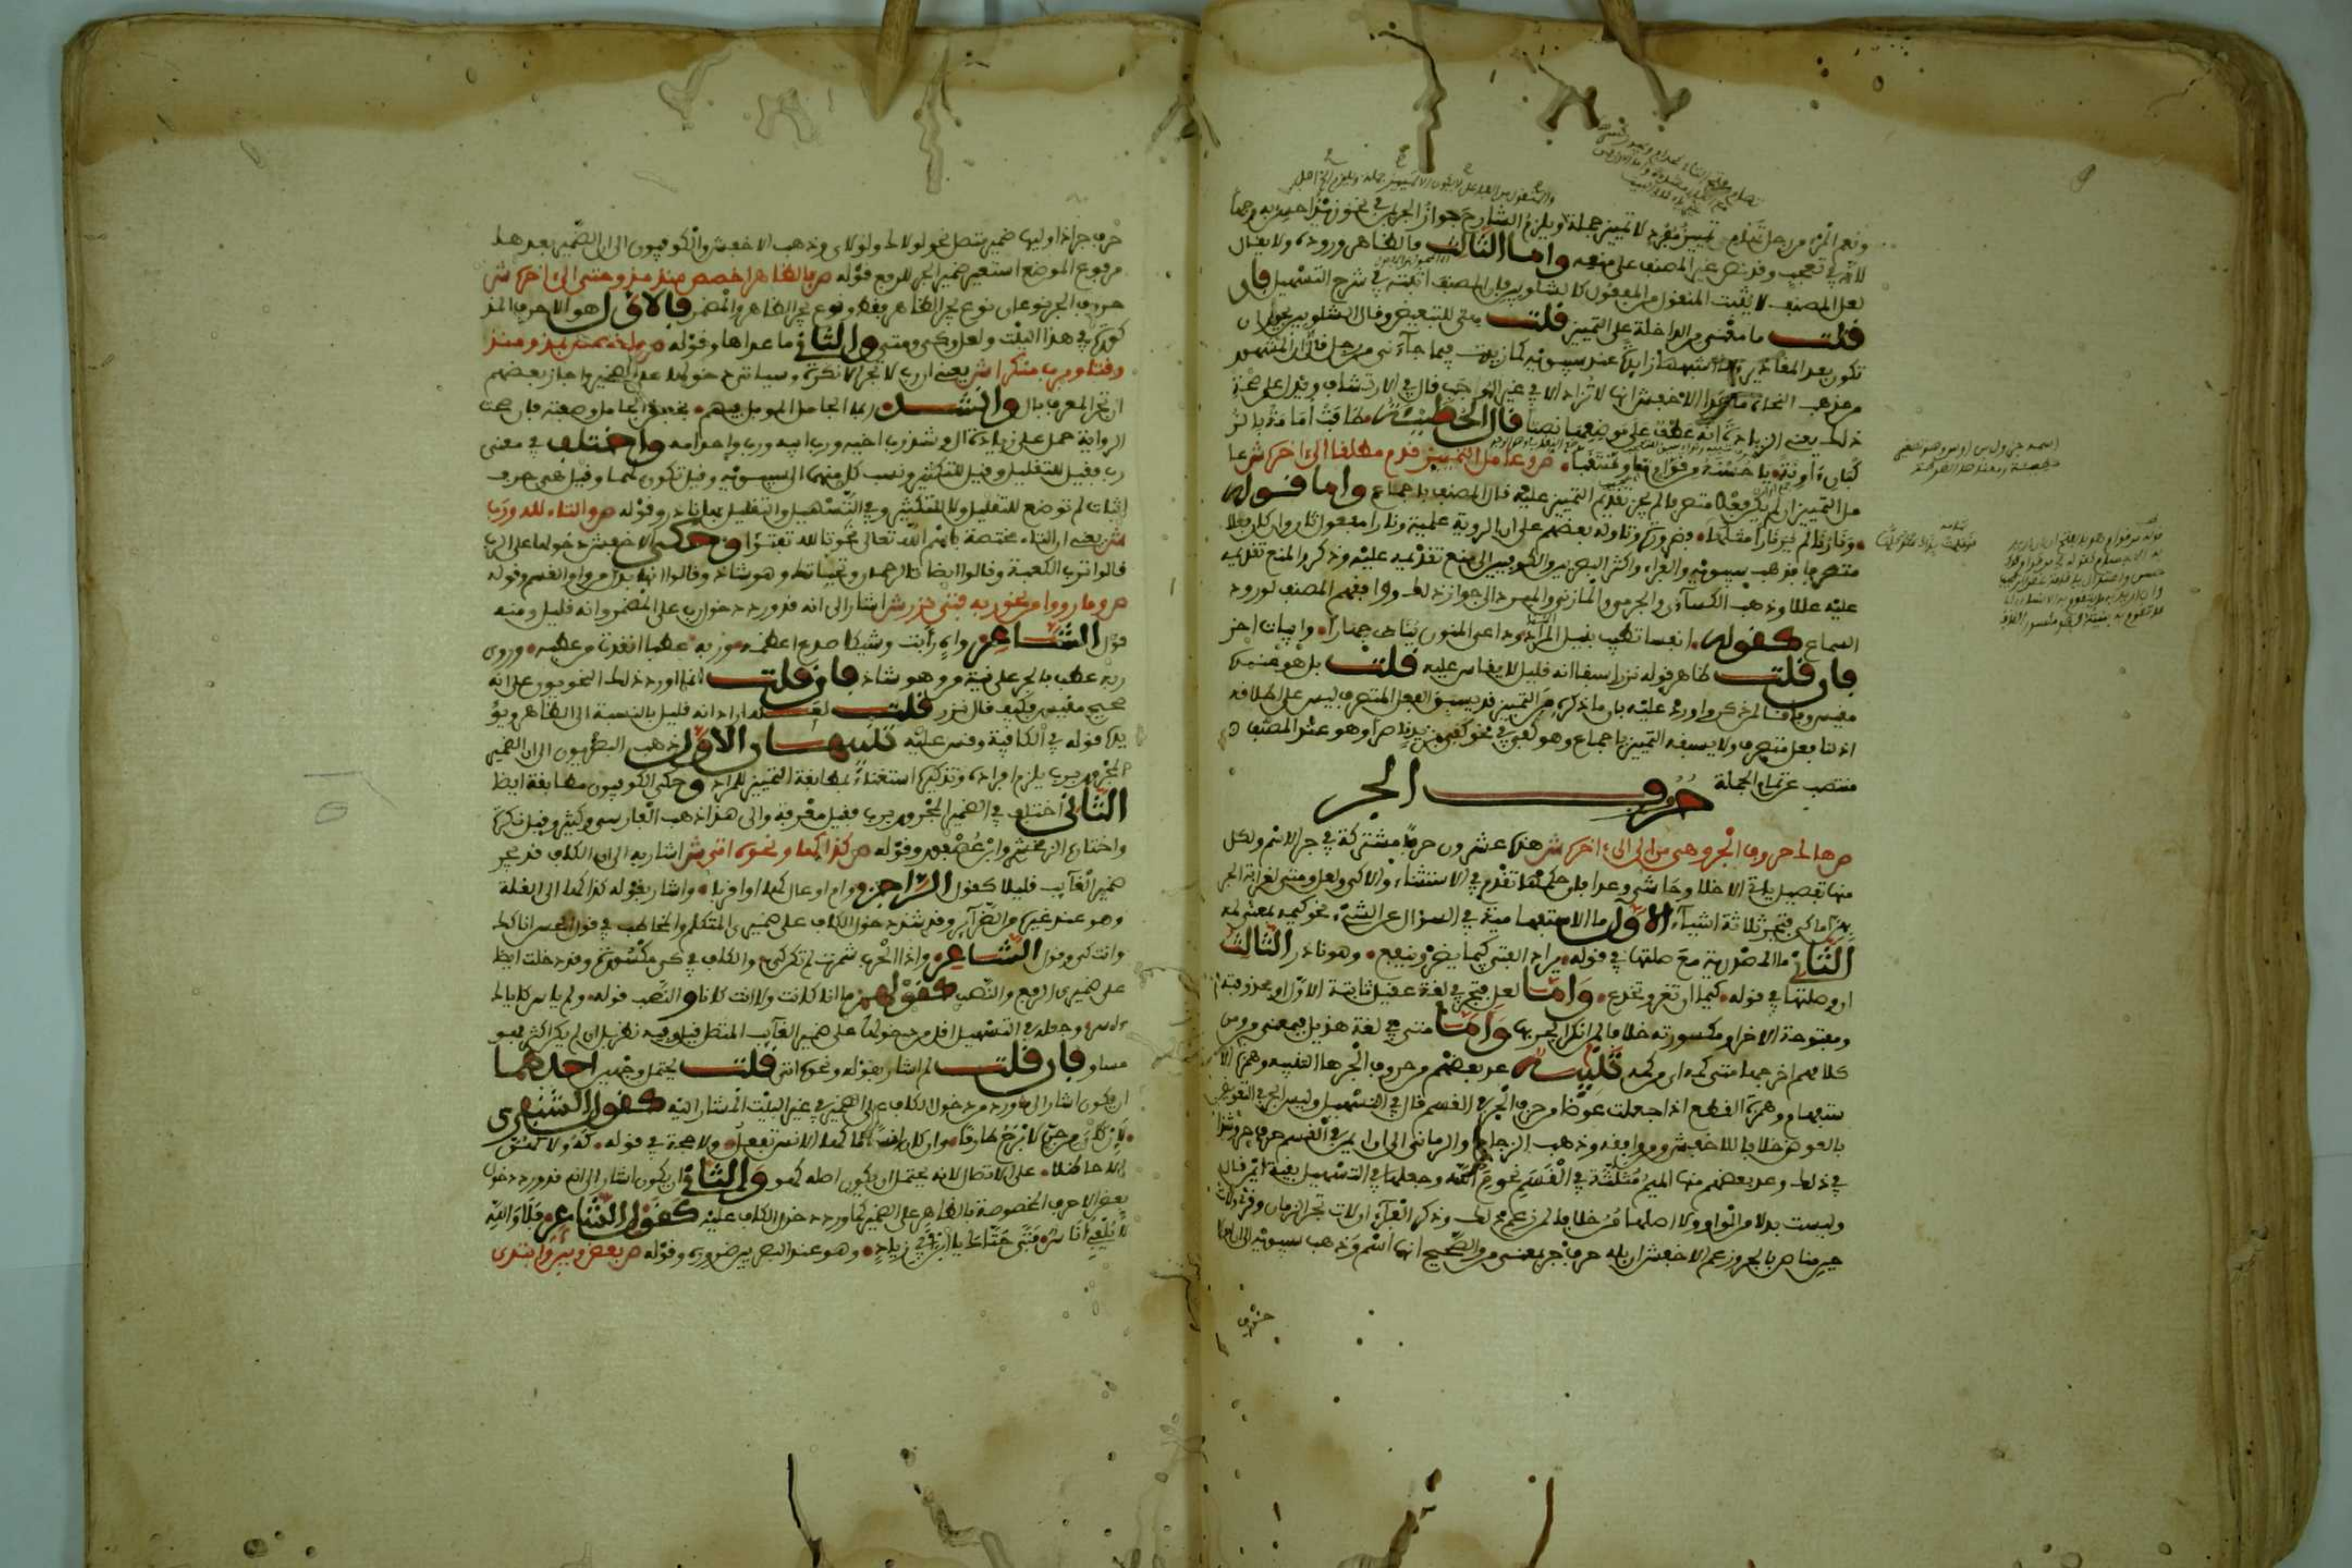 ونعم المرء من رجل تهام تمييز مفرد لا تمييز جملة ويلزم الشارح جواز الجر بمن في نحو زيد احسن به رجلا
للاثر في تعجب وقد نص غير المصنف على منعه واما الثالث فالظاهر وروده ولا يقال
لعل المصنف لا يثبت المنقول من المفعول كالشلوبين فان المصنف اثبته في شرح التسهيل فان
قلت ما معنى من الداخلة على التمييز قلت هي للتبعيض وقال الشلوبين يجوز ان
تكون بعد المقادير وما اشبهها زايدة عند سيبويه كما زيدت فيما جاءني من رجل قال الا ان المشهور
من مذهب النحاة ما عدا الاخفش انها لا تزاد الا في غير الواجب قال في الارتشاف ويدل على صحة
ذلك يعني الزيادة انه عطف على موضعها نصبا قال الحطيئة طافت امامة بالركبان
اونة يا حسنه من قوام ما ومنتقبا ص وعامل التمييز قدم مطلقا الى اخره ش عا
مل التمييز ان لم يكن فعلا متصرفا لم يجز تقديم التمييز عليه قال المصنف باجماع واما قوله
ونارنا لم ير نارا مثلها فضرورة وتاوله بعضهم على ان الروية علمية ونارا مفعول ثان وان كان فعلا
متصرفا فمذهب سيبويه والفراء واكثر البصريين والكوفيين الى منع تقديمه عليه وذكروا لمنع تقديمه
عليه عللا وذهب الكسائي والجرمي والمازني والمبرد الى جواز ذلك ووافقهم المصنف لورود
السماع كقوله انفسا تطيب بنيل المنى وداعي المنون ينادي جهارا وابيات اخر
فان قلت ظاهر قوله نزرا سبقا انه قليل لا يقاس عليه قلت بل هو عنده
مقيس
اذ لنا فعل متصرف ولا يسبقه التمييز باجماع وهو كفى في نحو كفى بزيد رجلا وهو عند المصنف
منتصب عن تمام الجملة
حروف الجر
ص هاك حروف الجر وهي من الى الى اخره ش هذه عشرون حرفا مشتركة في جر الاسم ولكل
منها تفصيل ياتي الا خلا وحاشى وعدا فان حكمها تقدم في الاستثناء والا كي ولعل ومتى لغرابة الجر
بهن اما كي فتجر ثلاثة اشياء الاول ما الاستفهامية في السؤال عن الشيء نحو كيمه بمعنى لمه
الثاني ما المصدرية مع صلتها في قوله يراد الفتى كيما يضر وينفع وهو نادر الثالث
ان وصلتها في قوله كيما ان تغر وتخدع واما لعل فتجر في لغة عقيل ثابتة الاول او محذوفته
ومفتوحة الاخر او مكسورته خلافا لمن انكر الجر بها واما متى في لغة هذيل بمعنى من ومن
كلامهم اخرجها متى كمه اي من كمه تنبيه عد بعضهم من حروف الجر ها التنبيه وهمزة الا
ستفهام وهمزة القطع اذا جعلت عوضا من حرف الجر في القسم قال في التسهيل وليس الجر في التعويض
بالعوض خلافا للاخفش ومن وافقه وذهب الزجاج والرماني الى ان ايمن في القسم حرف جر وشذا
في ذلك وعد بعضهم منها الميم مثلثة في القسم نحو م الله وجعلها في التسهيل بقية ايمن قال
وليست بدلا من الواو ولا اصلها من خلافا لمن زعم ذلك وذكر الفراء ان لات تجر الزمان وقرئ ولات
حين مناص بالجر وزعم الاخفش ان بله حرف جر بمعنى من والصحيح انها اسم وذهب سيبويه الى ان لولا
حرف جر اذا وليها ضمير متصل نحو لولاك ولولاي وذهب الاخفش والكوفيون الى ان الضمير بعدها
مرفوع الموضع استعير ضمير الجر للرفع قوله ص بالظاهر اخصص منذ مذ وحتى الى اخره ش
حروف الجر نوعان نوع يجر الظاهر فقط ونوع يجر الظاهر والمضمر فالاول هو الاحرف المذ
كورة في هذا البيت ولعل وكي ومتى والثاني ما عداها وقوله ص واخصص بمذ ومنذ
وقتا وبرب منكرا ش يعني ان رب لا تجر الا نكرة وسياتي دخولها على الضمير واجاز بعضهم
ان تجر المعرف بال وانشد ربما الجامل المؤبل فيهم بخفض الجامل وصفته فان صحت
الرواية حمل على زيادة ال وشذ رب اخيه ورب ابيه ورب واحد امه واختلف في معنى
رب فقيل للتقليل وقيل للتكثير ونسب كل منهما الى سيبويه وقيل تكون لهما وقيل هي حرف
اثبات لم توضع للتقليل ولا للتكثير وفي التسهيل والتقليل بها نادر وقوله ص والتاء لله ورب
ش يعني ان التاء مختصة باسم الله تعالى نحو تالله تفتؤا وحكى الاخفش دخولها على الرب
قالوا ترب الكعبة وقالوا ايضا تالرحمن وتحياتك وهو شاذ وقالوا انها بدل من واو القسم وقوله
ص وما رووا من نحو ربه فتى نزر ش اشار الى انه قد ورد دخول رب على المضمر وانه قليل ومنه
قول الشاعر واه رأبت وشيكا صدع اعظمه وربه عطبا انقذت من عطبه وروي
ربه عطب بالجر على نية من وهو شاذ فان قلت لما اورد ذلك النحويون على انه
صحيح مقيس فكيف قال نزر قلت لعله اراد انه قليل بالنسبة الى الظاهر ويؤ
يده قوله في الكافية وقس عليه تنبيهان الاول ذهب البصريون الى ان الضمير
المجرور برب يلزم افراده وتذكيره استغناء بمطابقة التمييز للمراد وحكى الكوفيون مطابقة ايضا
الثاني اختلف في الضمير المجرور برب فقيل معرفة والى هذا ذهب الفارسي وكثير وقيل نكرة
واختاره الزمخشري وابن عصفور وقوله ص كذا كها ونحوه اتى ش اشار به الى ان الكاف قد تجر
ضمير الغائب قليلا كقول الراجز وام اوعال كها او اقربا واشار بقوله كذا كها الى القلة
وهو عند غيره من الضرائر وقد شذ دخول الكاف على ضميري المتكلم والمخاطب في قول الحسن انا كك
وانت كي وقول الشاعر واذا الحرب شمرت لم تكن كي والكاف في كي مكسورة وقد دخلت ايضا
على ضميري الرفع والنصب كقولهم ما انا كانت ولا انت كانا والنصب قوله ولم ياسر كاياك
اسر وجعله في التسهيل اقل من دخولها على ضمير الغائب المتصل قيل وفيه نظر بل ان لم يكن اكثر فهو
مساو فان قلت لم اشار بقوله ونحوه اتى قلت يحتمل وجهين احدهما
ان يكون اشار الى ما ورد من دخول الكاف على الضمير في غير البيت المشار اليه كقول الشنفرى
لئن كان من جن لابرح طارقا وان كان انسا ما كها الانس تفعل ولا حجة في قوله كهو ولا كهن
الا حاظلا على الاتصال لانه يحتمل ان يكون اصله كهو والثاني ان يكون اشار الى انه قد ورد دخول
بعض الاحرف المخصوصة بالظاهر على الضمير كما ورد دخول الكاف عليه كقول الشاعر فلا والله
لا يلفي اناس فتى حتاك يا ابن ابي زياد وهو عند البصريين ضرورة وقوله ص بعض وبين وابتدي